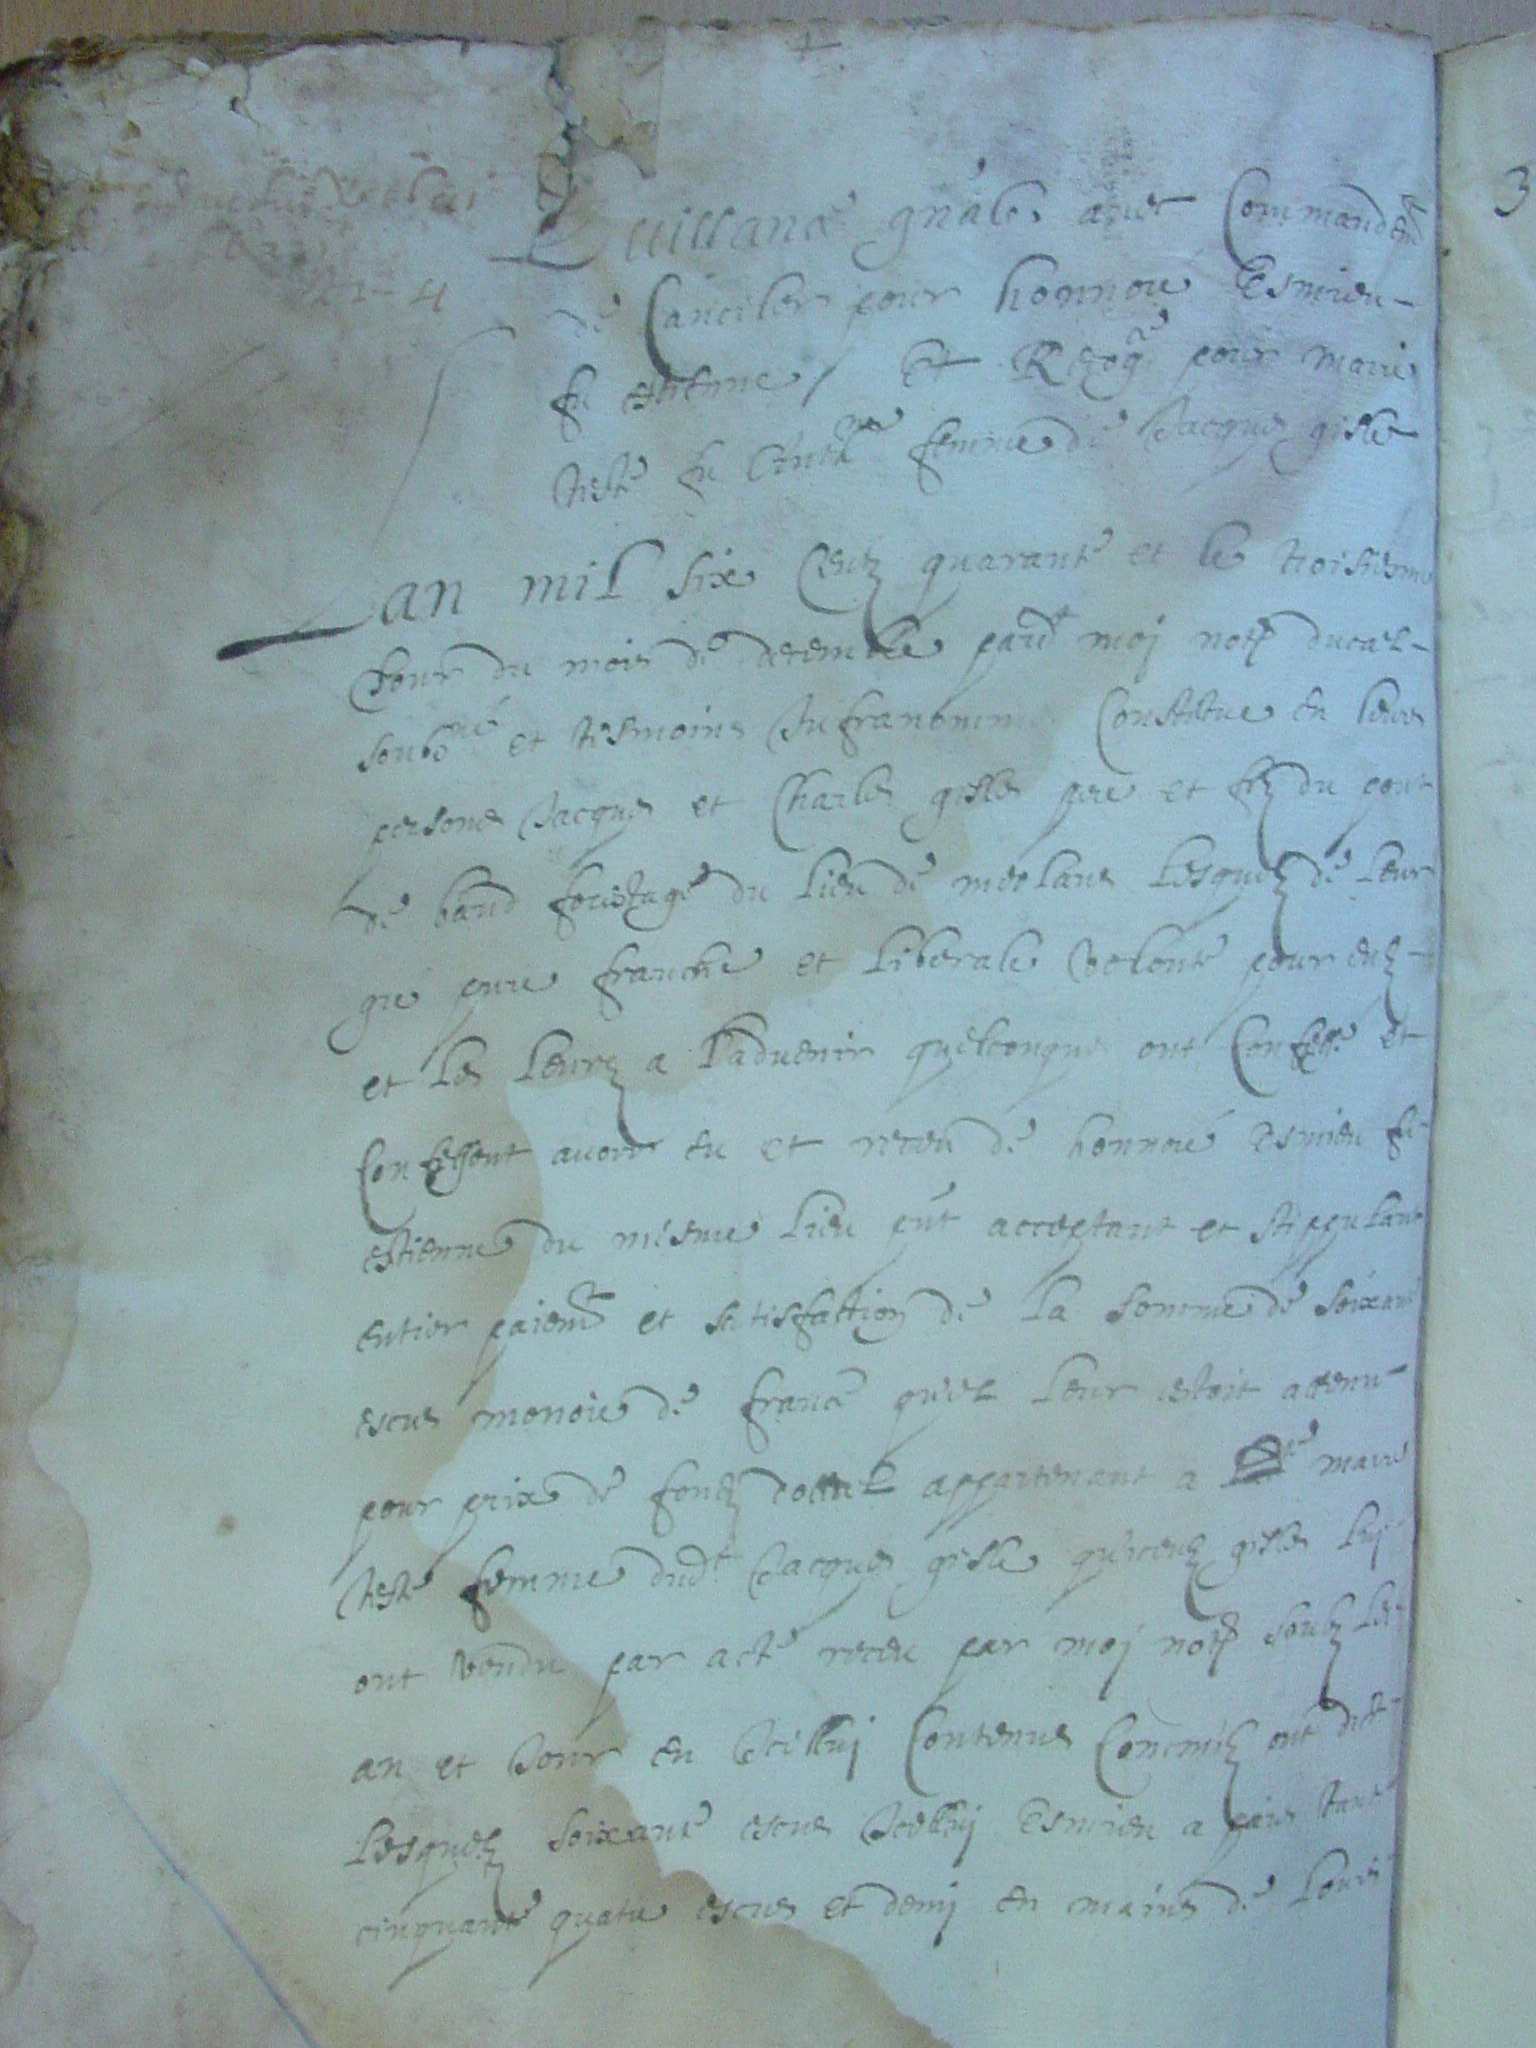 3
Quittance gnâle avec Commandemt
de Canceler pour honnoré Esmieu
fu estienne / Et Recog.ce pour marie
teste fu femme de Jacques gisle
Lan mil six Centz quarante et le troisiesme
Jour du mois de decembre pardt moj notre ducal
soubsné et tesmoins Infranommes Constitue en leurs
persones Jacques et Charles gisles pere et filz du pont
de baud forestage du lieu de meolans lesquelz de leur
gre pure franche et liberale volonte pour eulz
et les leurz a ladvenir quelconques ont Confesse et
Confessent avoir eu et receu de honnoré Esmieu fu
estienne du mesme lieu pnt acceptant et stippulant
entier paiemt et satisfaction de la somme de soixante
escus monoie de france quil leur estoit attenu
pour prix de fondz dottal appartenant a marie
teste femme dudt Jacques gisle quiceulz gisles luj
ont vendu par acte receu par moj notre soubz les
an et Jour en Icelluj Contenus Comme ilz ont dict
lesquelz soixante escus Icelluj Esmieu a paie tant
cinquante quatre escus et demj en mains de Louis